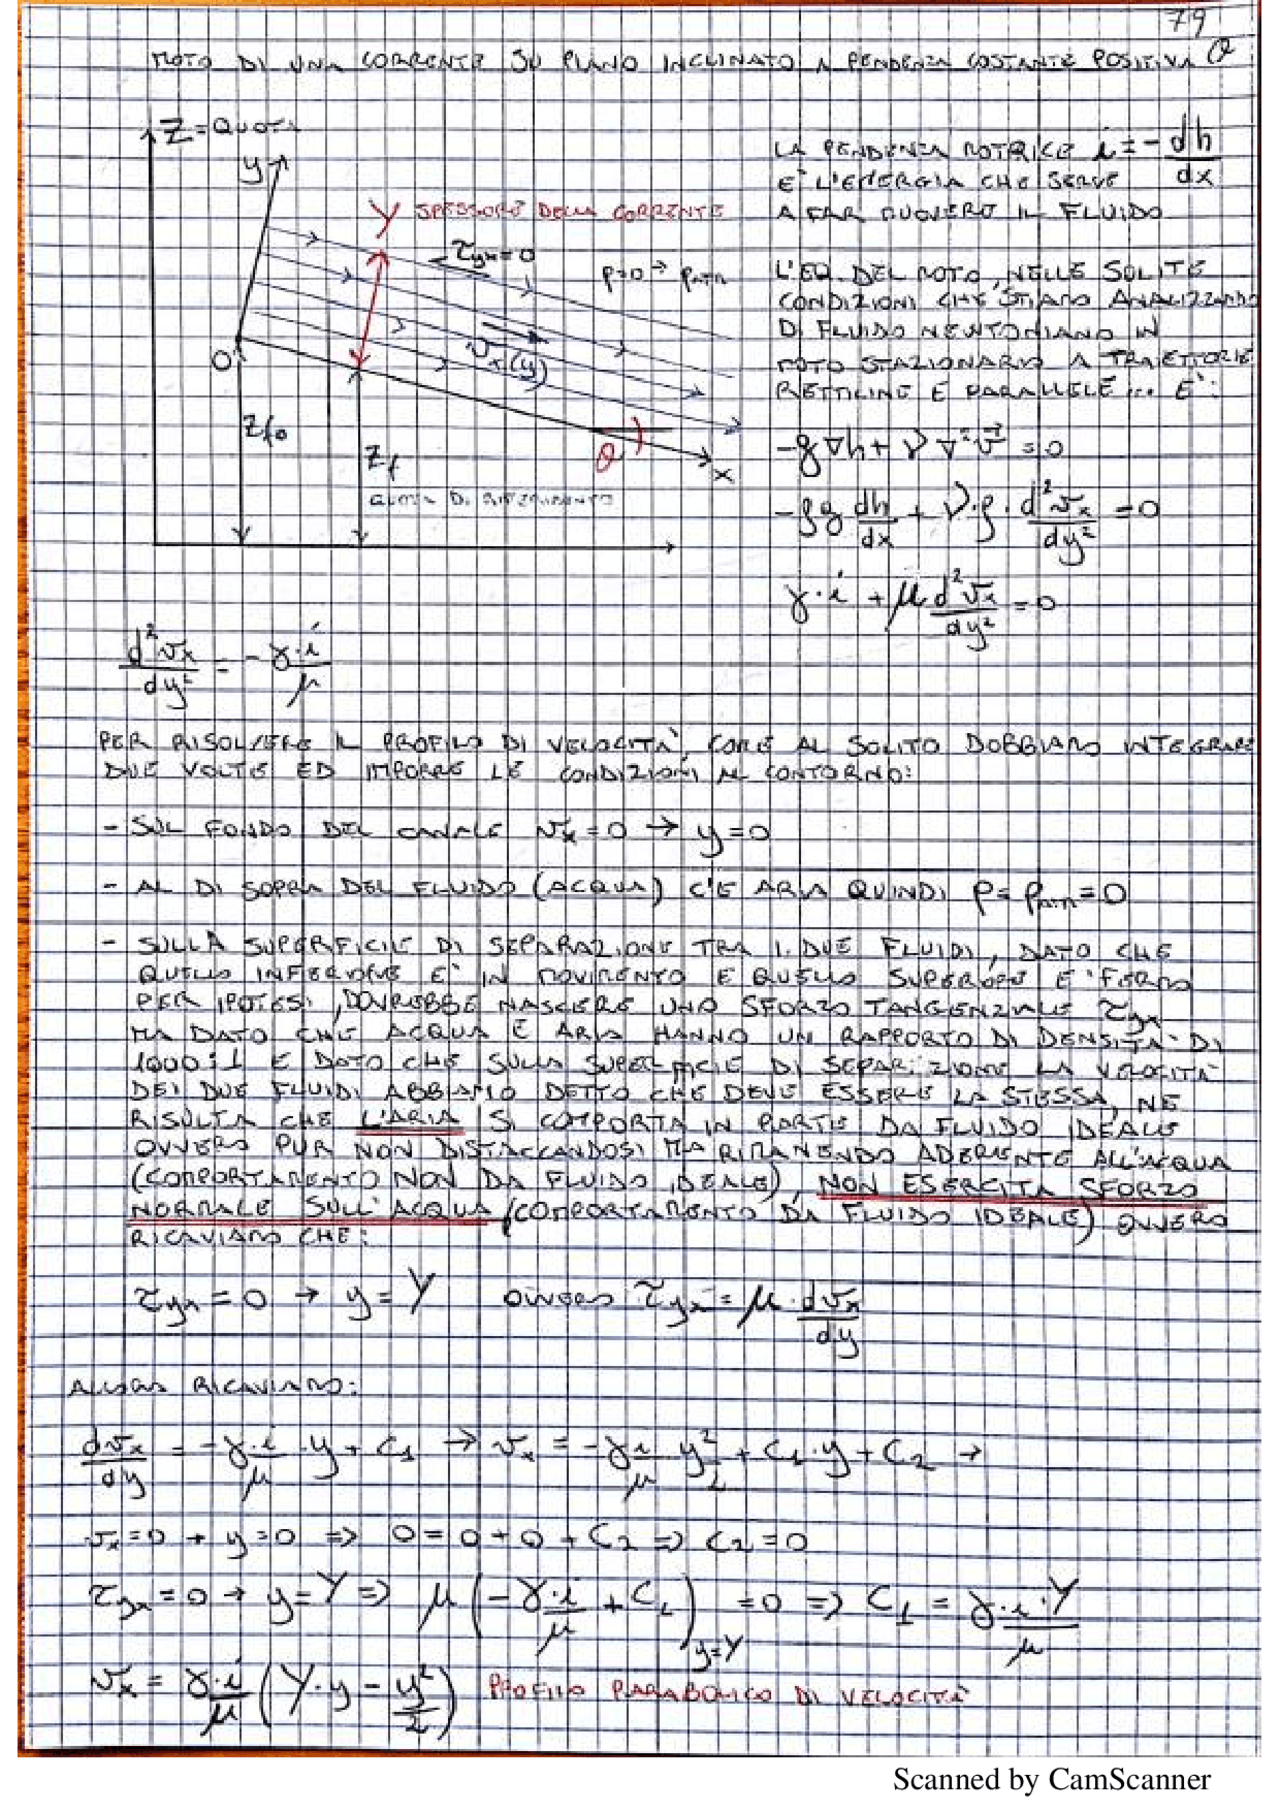 79
MOTO DI UNA CORRENTE SU PIANO INCLINATO A PENDENZA COSTANTE POSITIVA θ
Z=QUOTA
y
Y SPESSORE DELLA CORRENTE
τyx=0
p=0 → patm
vx(y)
O
Zf0
Zf
θ
x
QUOTA DI RIFERIMENTO
LA PENDENZA MOTRICE i = - dh/dx
E' L'ENERGIA CHE SERVE
A FAR MUOVERE IL FLUIDO
L'EQ. DEL MOTO, NELLE SOLITE
CONDIZIONI CHE STIAMO ANALIZZANDO
DI FLUIDO NEWTONIANO IN
MOTO STAZIONARIO A TRAIETTORIE
RETTILINE E PARALLELE ... E':
-g∇h + ν∇²v⃗ = 0
-ρg dh/dx + ν·ρ· d²vx/dy² = 0
γ·i + μ d²vx/dy² = 0
d²vx/dy² = - γ·i/μ
PER RISOLVERE IL PROFILO DI VELOCITA', COME AL SOLITO DOBBIAMO INTEGRARE
DUE VOLTE ED IMPORRE LE CONDIZIONI AL CONTORNO:
- SUL FONDO DEL CANALE vx=0 → y=0
- AL DI SOPRA DEL FLUIDO (ACQUA) C'E ARIA QUINDI p=patm=0
- SULLA SUPERFICIE DI SEPARAZIONE TRA I DUE FLUIDI, DATO CHE
QUELLO INFERIORE E' IN MOVIMENTO E QUELLO SUPERIORE E' FERMO
PER IPOTESI, DOVREBBE NASCERE UNO SFORZO TANGENZIALE τyx
MA DATO CHE ACQUA E ARIA HANNO UN RAPPORTO DI DENSITA' DI
1000:1 E DATO CHE SULLA SUPERFICIE DI SEPARAZIONE LA VELOCITA'
DEI DUE FLUIDI ABBIAMO DETTO CHE DEVE ESSERE LA STESSA, NE
RISULTA CHE L'ARIA SI COMPORTA IN PARTE DA FLUIDO IDEALE
OVVERO PUR NON DISTACCANDOSI MA RIMANENDO ADERENTE ALL'ACQUA
(COMPORTAMENTO NON DA FLUIDO IDEALE), NON ESERCITA SFORZO
NORMALE SULL'ACQUA (COMPORTAMENTO DA FLUIDO IDEALE) OVVERO
RICAVIAMO CHE:
τyx = 0 → y = Y OVVERO τyx = μ · dvx/dy
ALLORA RICAVIAMO:
dvx/dy = - γ·i/μ · y + C1 → vx = - γi/μ y²/2 + C1·y + C2 →
vx=0 → y=0 ⇒ 0 = 0 + 0 + C2 ⇒ C2 = 0
τyx=0 → y=Y ⇒ μ (- γ·i/μ + C1) y=Y = 0 ⇒ C1 = γ·i·Y/μ
vx = γ·i/μ (Y·y - y²/2) PROFILO PARABOLICO DI VELOCITA'
Scanned by CamScanner